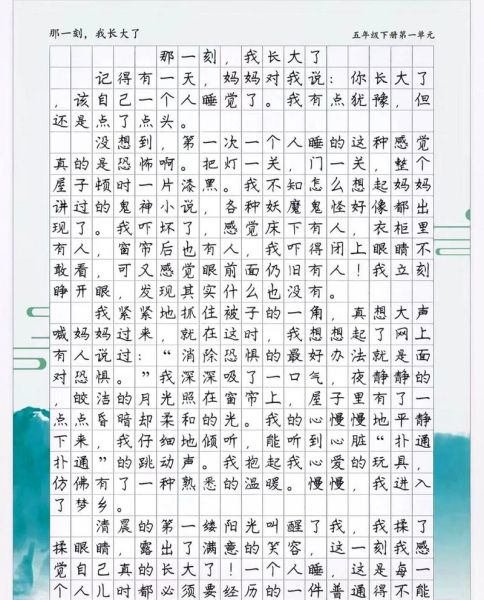 那一刻，我长大了
五年级下册第一单元
那一刻，我长大了
记得有一天，妈妈对我说：你长大了
，该自己一个人睡觉了。我有点犹豫，但
还是点了点头。
没想到，第一次一个人睡的这种感觉
真的是恐怖啊。把灯一关，门一关，整个
屋子顿时一片漆黑。我不知怎么想起妈妈
讲过的鬼神小说，各种妖魔鬼怪好像都出
现了。我吓坏了，感觉床下有人，衣柜里
有人，窗帘后也有人，我吓得闭上眼睛不
敢看，可又感觉眼前面仍旧有人！我立刻
睁开眼，发现其实什么也没有。
我紧紧地抓住被子的一角，真想大声
喊妈妈过来，就在这时，我想想起了网上
有人说过：“消除恐惧的最好办法就是面
对恐惧。”我深深吸了一口气，夜静静的
，皎洁的月光照在窗帘上，屋子里有了一
点点昏暗却柔和的光。我的心慢慢地平静
下来，我仔细地倾听，能听到心脏“扑通
扑通”的跳动声。我抱起我心爱的玩具，
仿佛有了一种熟悉的温暖。慢慢，我进入
了梦乡。
清晨的第一缕阳光叫醒了我，我揉了
揉眼睛，露出了满意的笑容，这一刻我感
觉自己真的长大了！一个人睡，这是每一
个人儿时都必须要经历的一件普通得不能